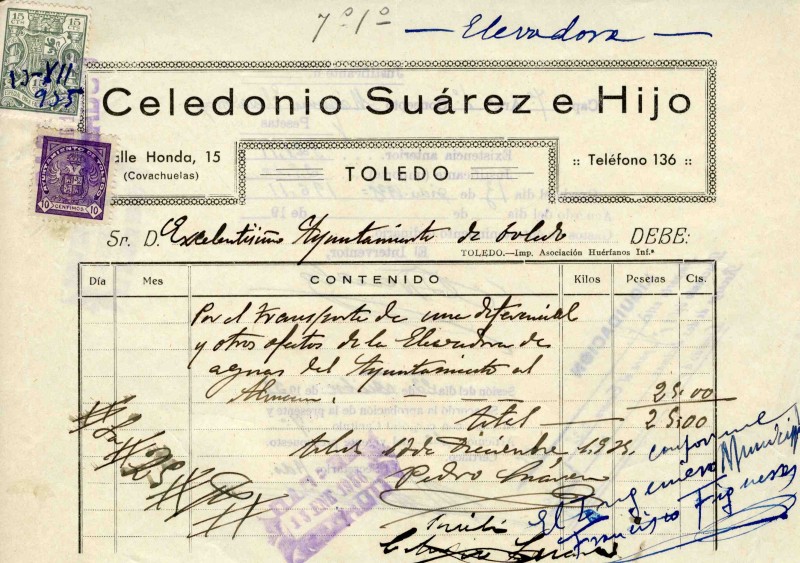 7º 1º
— Elevadora —
15 CTS 15 CTS
13-XII
935
Celedonio Suárez e Hijo
lle Honda, 15
(Covachuelas)
TOLEDO
:: Teléfono 136 ::
10 CENTIMOS 10
Sr. D. Excelentísimo Ayuntamiento de Toledo DEBE:
TOLEDO.—Imp. Asociación Huérfanos Inf.ª
Día Mes CONTENIDO Kilos Pesetas Cts.
Por el transporte de una diferencial
y otros efectos de la Elevadora de
aguas del Ayuntamiento al
Almacen. 25,00
total — 25,00
Toledo 12 de Diciembre 1.935
Pedro Suárez
conforme
El Ingeniero Municipal
Francisco Figueras
Recibí